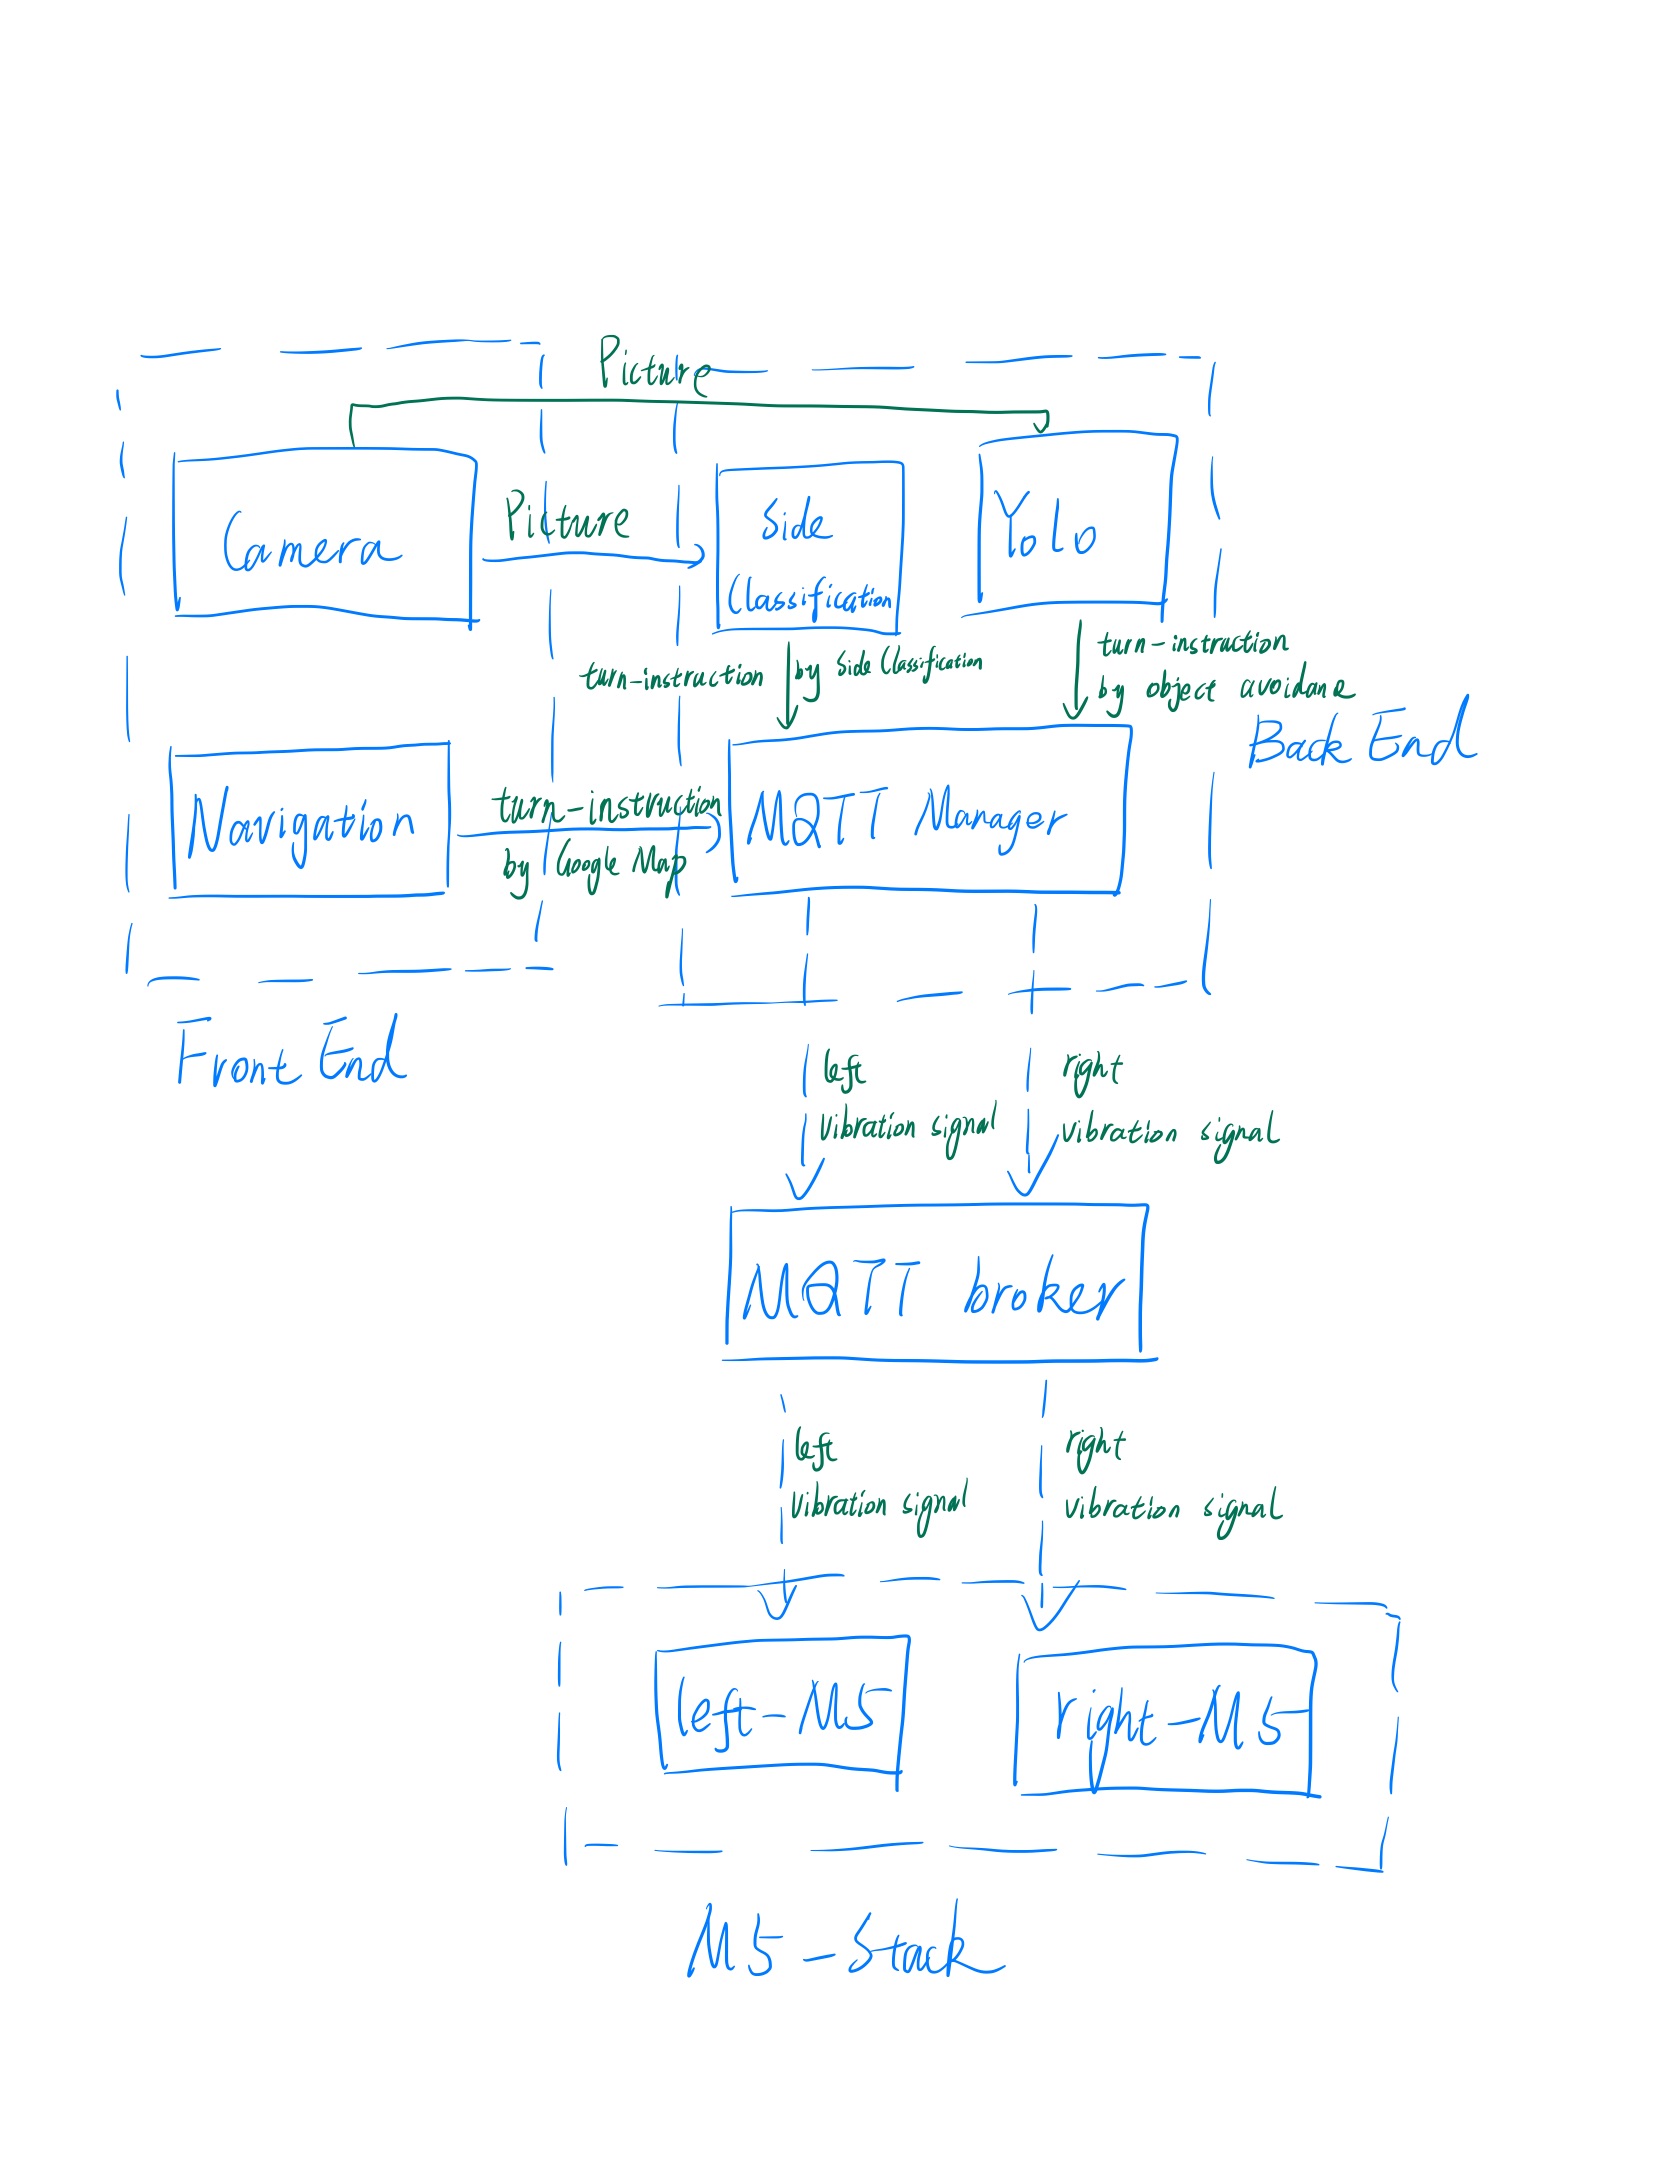 Picture
Camera
Picture
Side
Classification
Yolo
turn-instruction
by Side Classification
turn-instruction
by object avoidane
Back End
Navigation
turn-instruction
by Google Map
MQTT Manager
Front End
left
vibration signal
right
vibration signal
MQTT broker
left
vibration signal
right
vibration signal
left-M5
right-M5
M5-Stack